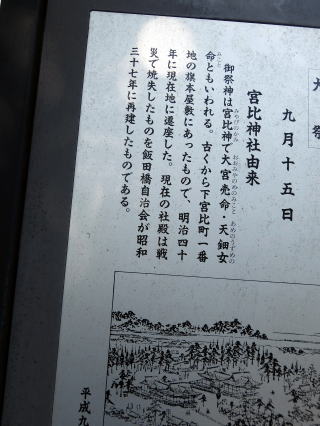 大祭
九月十五日
宮比神社由来
御祭神は宮比神で大宮売命・天鈿女
命ともいわれる。古くから下宮比町一番
地の旗本屋敷にあったもので、明治四十
年に現在地に遷座した。現在の社殿は戦
災で焼失したものを飯田橋自治会が昭和
三十七年に再建したものである。
平成九